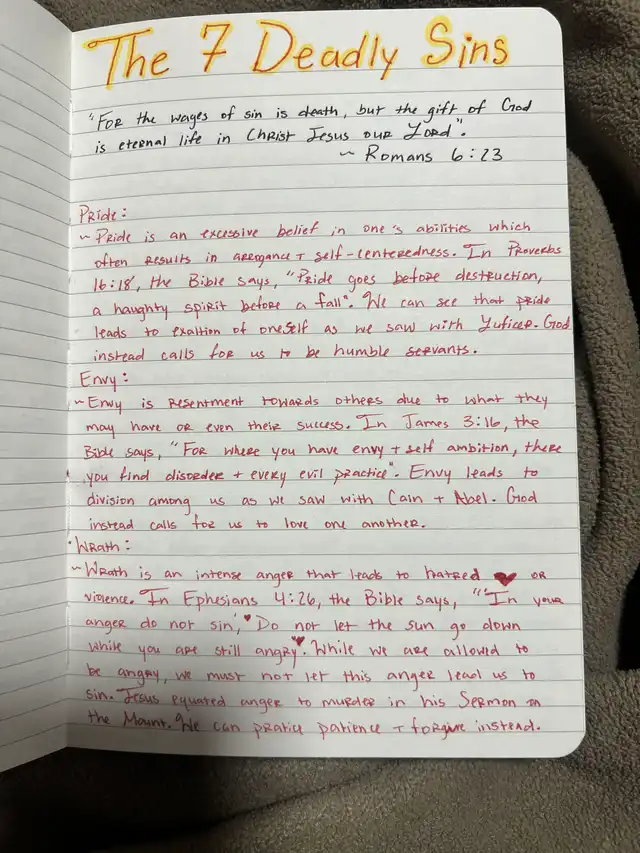 The 7 Deadly Sins
"For the wages of sin is death, but the gift of God
is eternal life in Christ Jesus our Lord".
~ Romans 6:23
Pride:
~ Pride is an excessive belief in one's abilities which
often results in arrogance + self-centeredness. In Proverbs
16:18, the Bible says, "Pride goes before destruction,
a haughty spirit before a fall". We can see that pride
leads to exaltion of oneself as we saw with Luficer. God
instead calls for us to be humble servants.
Envy:
~ Envy is resentment towards others due to what they
may have or even their success. In James 3:16, the
Bible says, "For where you have envy + self ambition, there
you find disorder + every evil practice". Envy leads to
division among us as we saw with Cain + Abel. God
instead calls for us to love one another.
Wrath:
~ Wrath is an intense anger that leads to hatred ♥ or
violence. In Ephesians 4:26, the Bible says, "'In your
anger do not sin', Do not let the sun go down
while you are still angry". While we are allowed to
be angry, we must not let this anger lead us to
sin. Jesus equated anger to murder in his Sermon on
the Mount. We can pratice patience + forgive instead.